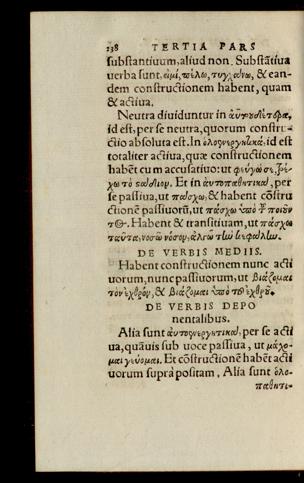 238 TERTIA PARS
substantiuum, aliud non. Substātiua
uerba sunt, εἰμί, πέλω, τυγχάνω, & ean-
dem constructionem habent, quam
& actiua.
Neutra diuiduntur in
id est, per se neutra, quorum constru-
ctio absoluta est. In ὁλοενεργητικά, id est
totaliter actiua, quæ constructionem
habēt cum accusatiuo: ut φεύγω σε, τρέ-
χω τὸ στάδιον. Et in αὐτοπαθητικά, per
se passiua, ut πάσχω, & habent cōstru
ctionē passiuorū, ut πάσχω ὑπὸ τοῦ ποιοῦν
τος. Habent & transitiuam, ut πάσχω
ταῦτα, νοσῶ νόσον, ἀλγῶ τὴν κεφαλήν.
DE VERBIS MEDIIS.
Habent constructionem nunc acti
uorum, nunc passiuorum, ut βιάζομαι
τὸν ἐχθρόν, & βιάζομαι ὑπὸ τοῦ ἐχθροῦ.
DE VERBIS DEPO
nentalibus.
Alia sunt αὐτοενεργητικά, per se acti
ua, quāuis sub uoce passiua, ut μάχο-
μαι, γεύομαι. Et cōstructionē habēt acti
uorum suprà positam. Alia sunt ὁλο-
παθητι-